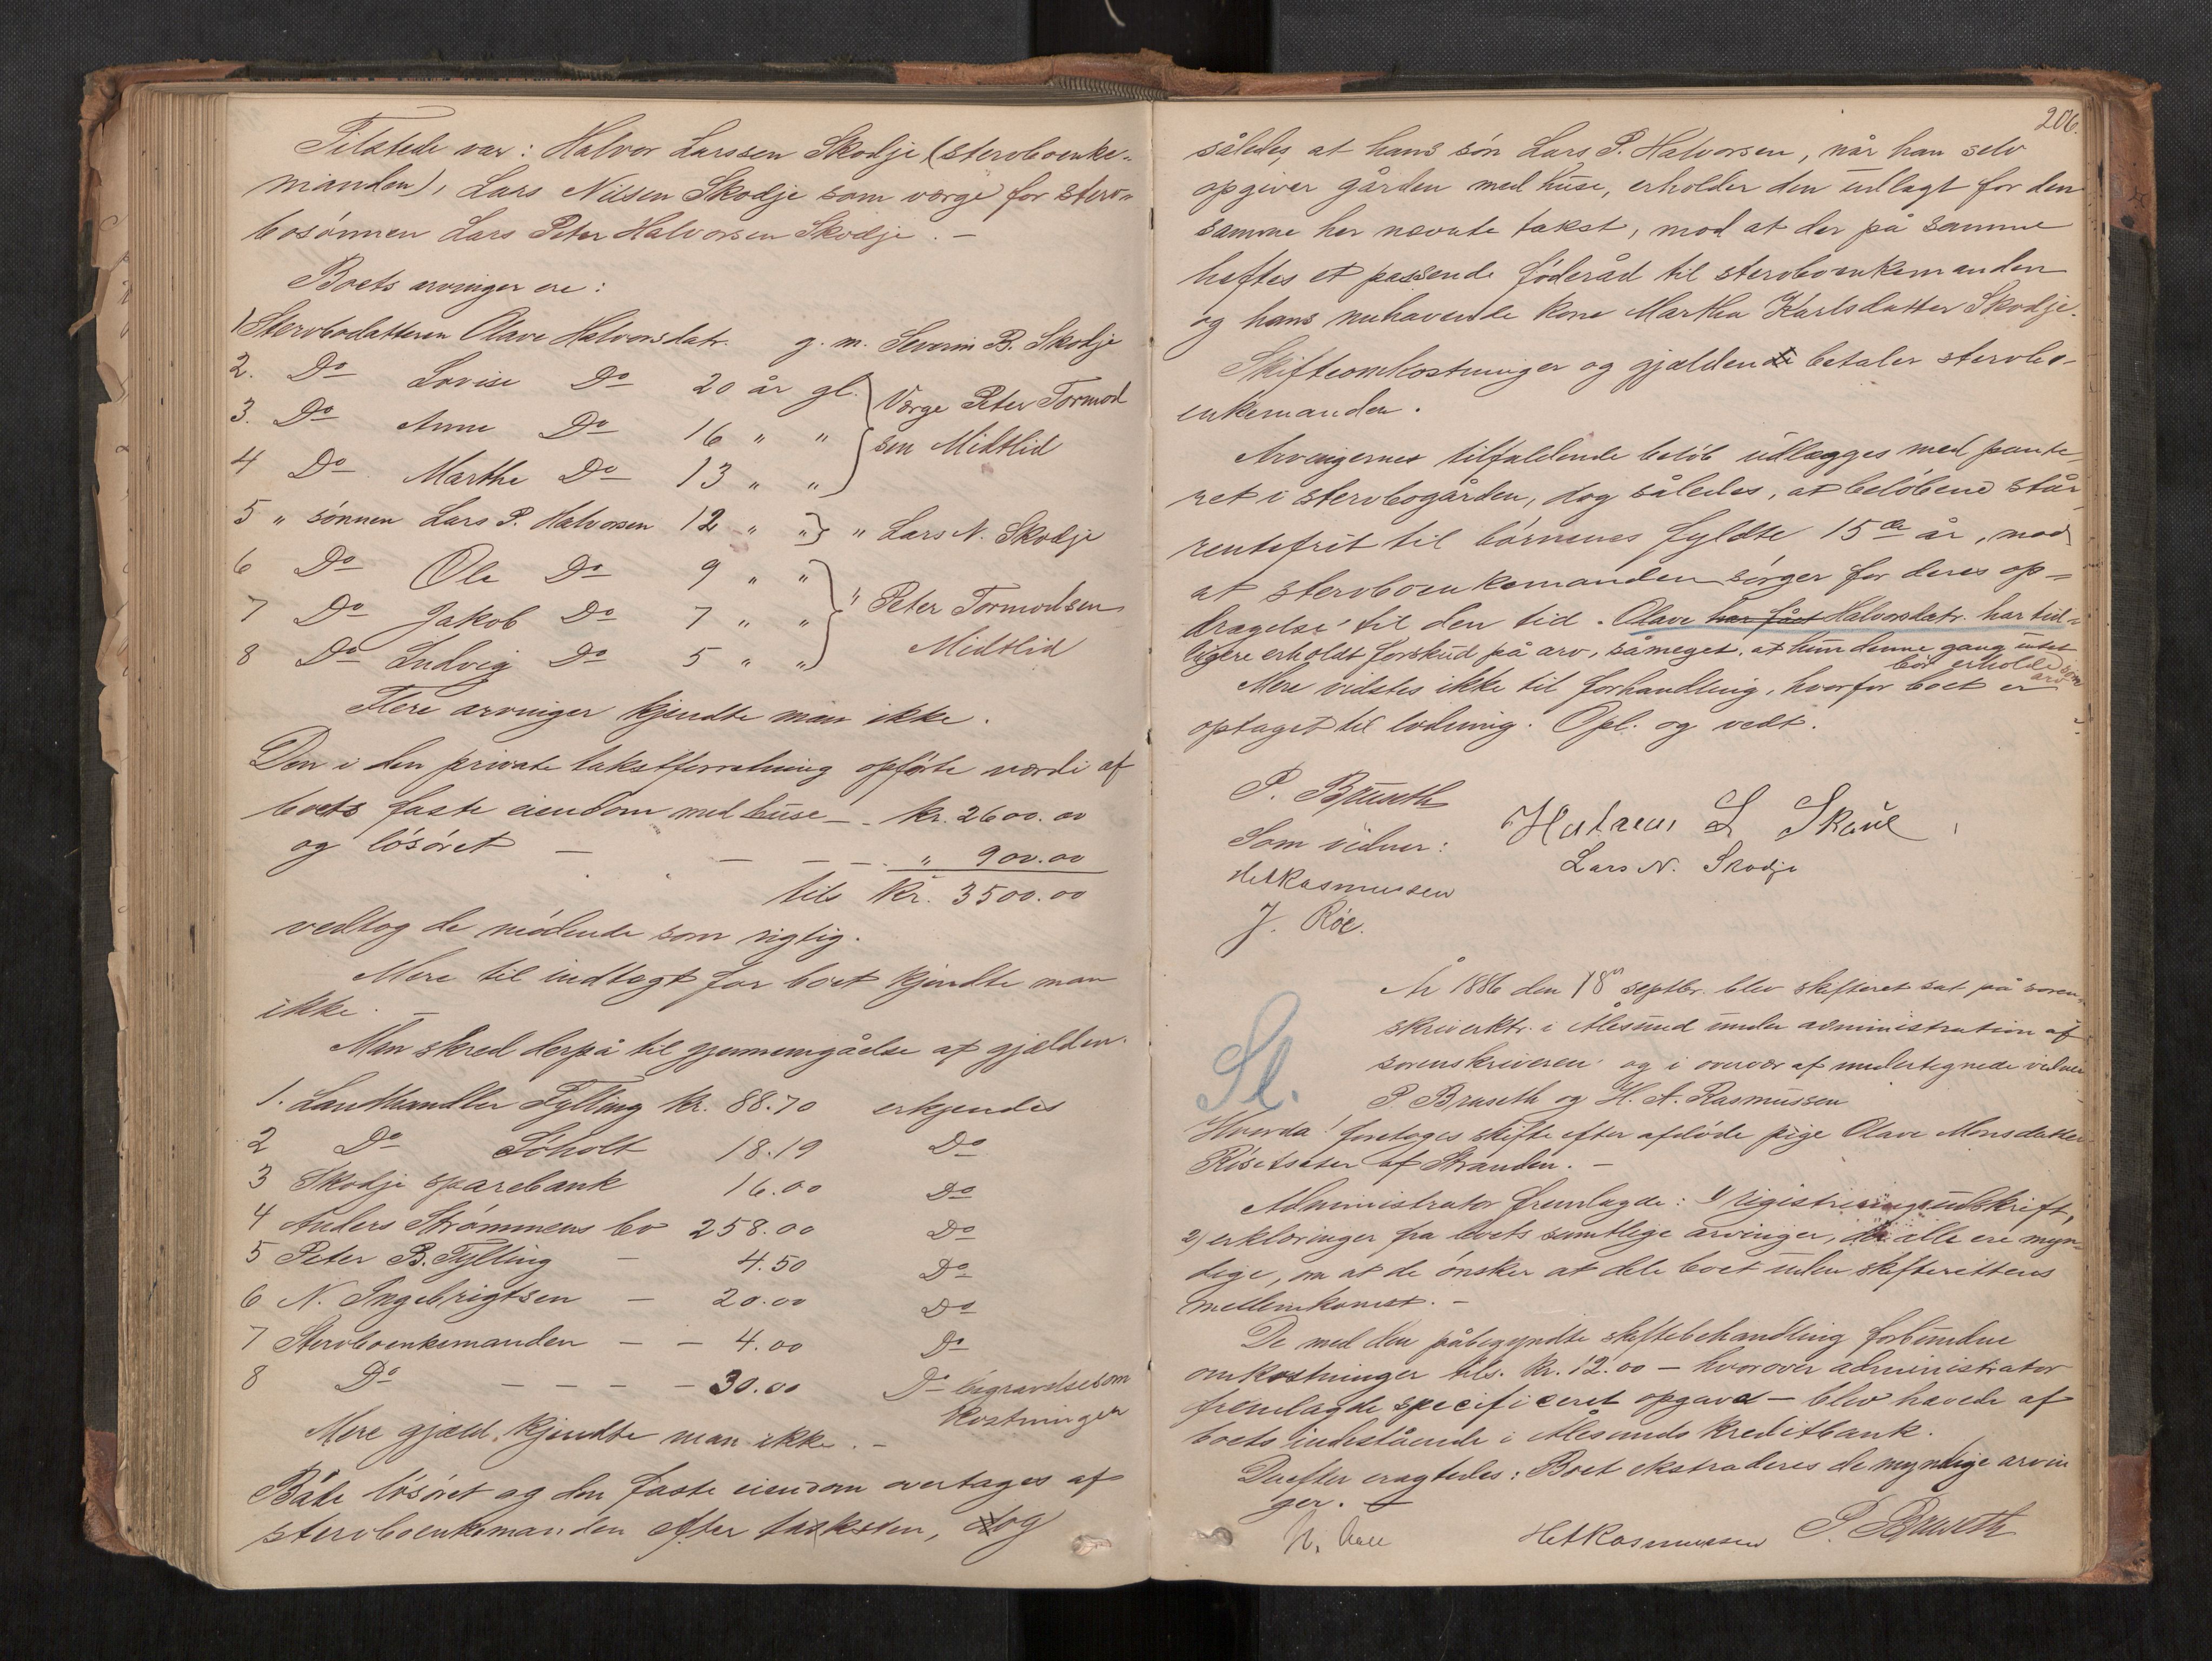 Tilstede var: Halvor Larssen Skodje (stervboenke-
manden), Lars Nilsen Skodje som værge for sterv-
bosönnen Lars Peter Halvorsen Skodje. —
Boets arvinger ere:
1 Stervbodatteren Olave Halvorsdatr. g. m. Severin B. Skodje
2. Do Lovise Do 20 år gl. } Værge Peter Tormod
3. Do Anne Do 16 " " sen Midtlid
4 Do Marthe Do 13 " "
5 " sönnen Lars P. Halvorsen 12 " " } " Lars N. Skodje
6 Do Ole Do 9 " "
7 Do Jakob Do 7 " " } " Peter Tormodsen
8 Do Ludvig Do 5 " " Midtlid
Flere arvinger kjendte man ikke.
Den i den private takstforretning opförte værdi af
boets faste eiendom med huse — kr. 2600.00
og lösöret — — — — " 900.00
tils kr. 3500.00
vedtog de mödende som rigtig.
Mere til indtægt for boet kjendte man
ikke. —
Man skred derpå til gjennemgåelse af gjælden.
1. Landhandler Fylling kr. 88.70 erkjendes
2 Do Söholt 18.19 Do
3 Skodje sparebank 16.00 Do
4 Anders Strömmens bo 258.00 Do
5 Peter B. Fylling — 4.50 Do
6 N. Ingebrigtsen — 20.00 Do
7 Stervboenkemanden — — 4.00 Do
8 Do — — — — 30.00 Do begravelsesom
kostninger
Mere gjæld kjendte man ikke. —
Både lösöret og den faste eiendom overtages af
stervboenkemanden efter taksten, dog
206.
således, at hans sön Lars P. Halvorsen, når han selv
opgiver gården med huse, erholder den udlagt for den
samme her nævnte takst, mod at der på samme
heftes et passende föderåd til stervboenkemanden
og hans nuhavende kone Marthea Karlsdatter Skodje.
Skifteomkostninger og gjælden betaler stervbo-
enkemanden.
Arvingernes tilfaldende belöb udlægges med pante-
ret i stervbogården, dog således, at belöbene står
rentefrit til börnenes fyldte 15de år, mod
at stervboenkemanden sörger for deres op-
dragelse til den tid. Olave har fået Halvorsdatr. har tid-
ligere erholdt forskud på arv, såmeget, at hun denne gang intet
bör erholde som
arv
Mere vidstes ikke til forhandling, hvorfor boet er
optaget til lodning. Opl. og vedt.
P. Bruseth
Som vidner: Halvor L Skaue
Lars N. Skodje
HARasmussen
J. Röe.
År 1886 den 18n septbr. blev skifteret sat på soren-
skriverktr. i Ålesund under administration af
sorenskriveren og i overvær af undertegnede vidner
P. Bruseth og H. A. Rasmussen
Sl.
Hvorda! foretoges skifte efter afdöde pige Olave Monsdatter
Rösetsæter af Stranden. —
Administrator fremlagde: 1) registreringsudskrift,
2) erklæringer fra boets samtlige arvinger, der alle ere myn-
dige, om at de önsker at dele boet uden skifterettens
mellemkomst. —
De med den påbegyndte skiftebehandling forbundne
omkostninger tils. kr. 12.00 — hvorover administrator
fremlagde specificeret opgave — blev hævede af
boets indestående i Ålesunds kreditbank.
Derefter eragtedes: Boet ekstraderes de myndige arvin
ger. —
HARasmussen P. Bruseth